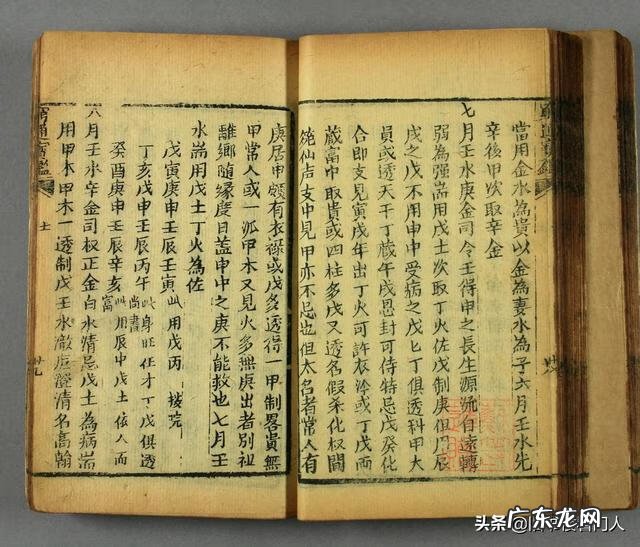 窮通寶鑑
當用金水為貴以金為妻水為子六月壬水先
辛後甲次取辛金
七月壬水庚金司令壬得申之長生源流自遠轉
弱為强耑用戊土次取丁火佐戊制庚但用辰
戌之戊不用申中受病之戊匕丁俱透科甲大
員或透天干丁藏午戌恩封可侍特忌戊癸化
合即支見寅戌年出丁火可許衣衿或丁戊而
藏富中取貴或四柱多戊又透名假杀化权閫
苑仙吉支中見甲亦不忌也但太名者常人有
庚居申頗有衣祿或戊多透得一甲制畧貴無
甲常人或一派甲木又見火多無庚出者別祖
離鄉随緣度日盖申中之庚不能救也七月壬
水耑用戊土丁火為佐
戊寅庚申壬辰壬寅 此用戊丙 按院
丁亥戊申壬辰丙午 此身旺任才丁戊俱透 尚書
癸酉庚申壬辰辛亥 此用辰中戊土依人而富
八月壬水辛金司权正金白水清忌戊土為病耑
用甲木甲木一透制戊壬水澈底澄清名高翰
窮通寶鑑
廿九
头条
广东龙网
门人